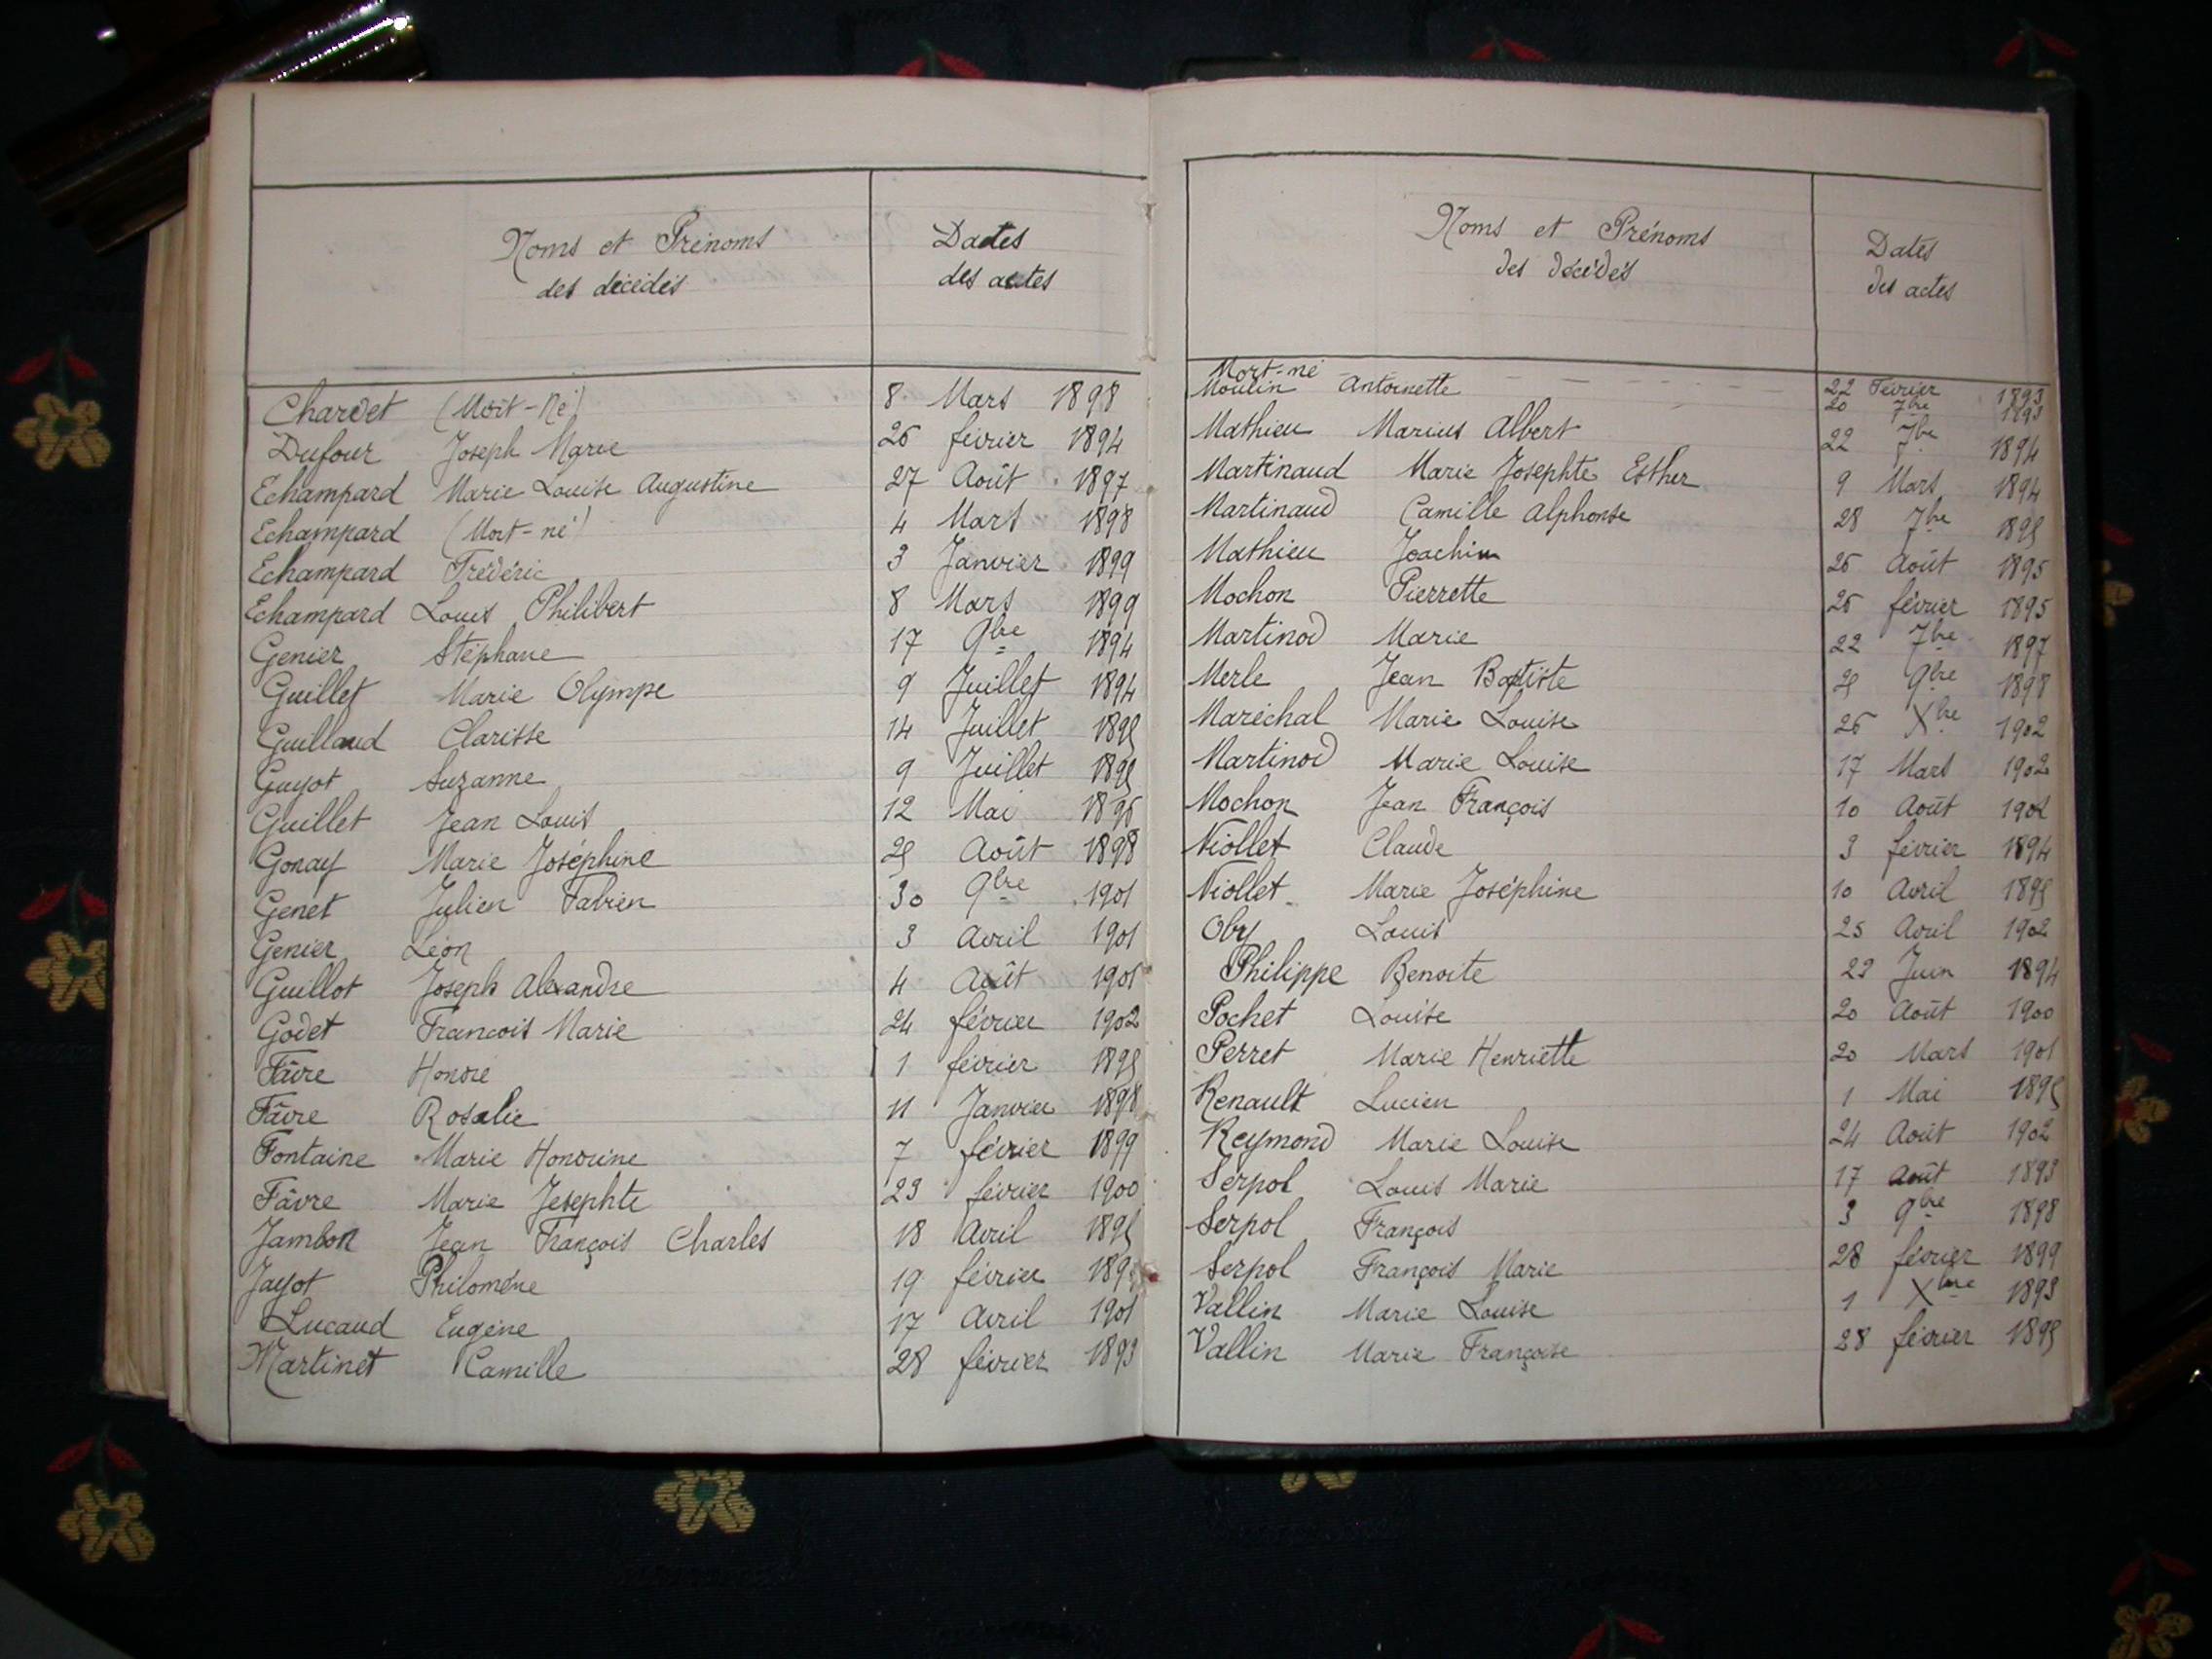 Noms et Prénoms
des décédés
Dates
des actes
Chardet (Mort-Né) 8 Mars 1898
Dufour Joseph Marie 26 février 1894
Echampard Marie Louise Augustine 27 Août 1897
Echampard (Mort-né) 4 Mars 1898
Echampard Frédéric 3 Janvier 1899
Echampard Louis Philibert 8 Mars 1899
Genier Stéphane 17 9bre 1894
Guillet Marie Olympe 9 Juillet 1894
Guillaud Clarisse 14 Juillet 1895
Guyot Suzanne 9 Juillet 1895
Guillet Jean Louis 12 Mai 1896
Gonay Marie Joséphine 25 Août 1898
Genet Julien Fabien 30 9bre 1901
Genier Léon 3 Avril 1901
Guillot Joseph Alexandre 4 Août 1901
Godet Francois Marie 24 février 1902
Fâvre Honoré 1 février 1895
Fâvre Rosalie 11 Janvier 1898
Fontaine Marie Honorine 7 février 1899
Fâvre Marie Josephte 23 février 1900
Jambon Jean François Charles 18 Avril 1895
Jayot Philomène 19 février
Lucaud Eugène 17 Avril 1901
Martinet Camille 28 février 1893
Noms et Prénoms
des décédés
Dates
des actes
Mort-né 22 Février 1893
Moulin Antoinette 20 7bre 1893
Mathieu Marius Albert 22 7bre 1894
Martinaud Marie Josephte Esther 9 Mars 1894
Martinaud Camille Alphonse 28 7bre 1895
Mathieu Joachim 26 Août 1895
Mochon Pierrette 26 février 1895
Martinod Marie 22 7bre 1897
Merle Jean Baptiste 25 9bre 1898
Maréchal Marie Louise 26 Xbre 1902
Martinod Marie Louise 17 Mars 1902
Mochon Jean François 10 Août 1902
Niollet Claude 3 février 1894
Niollet Marie Joséphine 10 Avril 1895
Oby Louis 25 Avril 1902
Philippe Benoite 23 Juin 1894
Pochet Louise 20 Août 1900
Perret Marie Henriette 20 Mars 1901
Renault Lucien 1 Mai 1895
Reymond Marie Louise 24 Août 1902
Serpol Louis Marie 17 Août 1893
Serpol François 3 9bre 1898
Serpol François Marie 28 février 1899
Vallin Marie Louise 1 Xbre 1893
Vallin Marie Françoise 28 février 1895